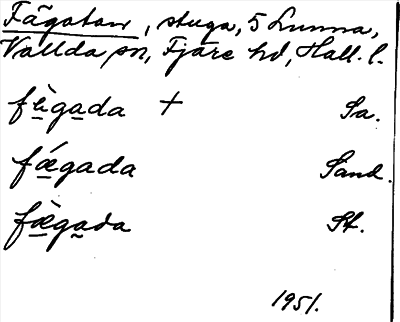 Fägatan, stuga, 5 Lunna,
Vallda sn, Fjäre hd, Hall. l.
fè̱ga̱da + Sa.
fǽ̱gada Sand.
fæ̱̀ga̱da St.
1951.